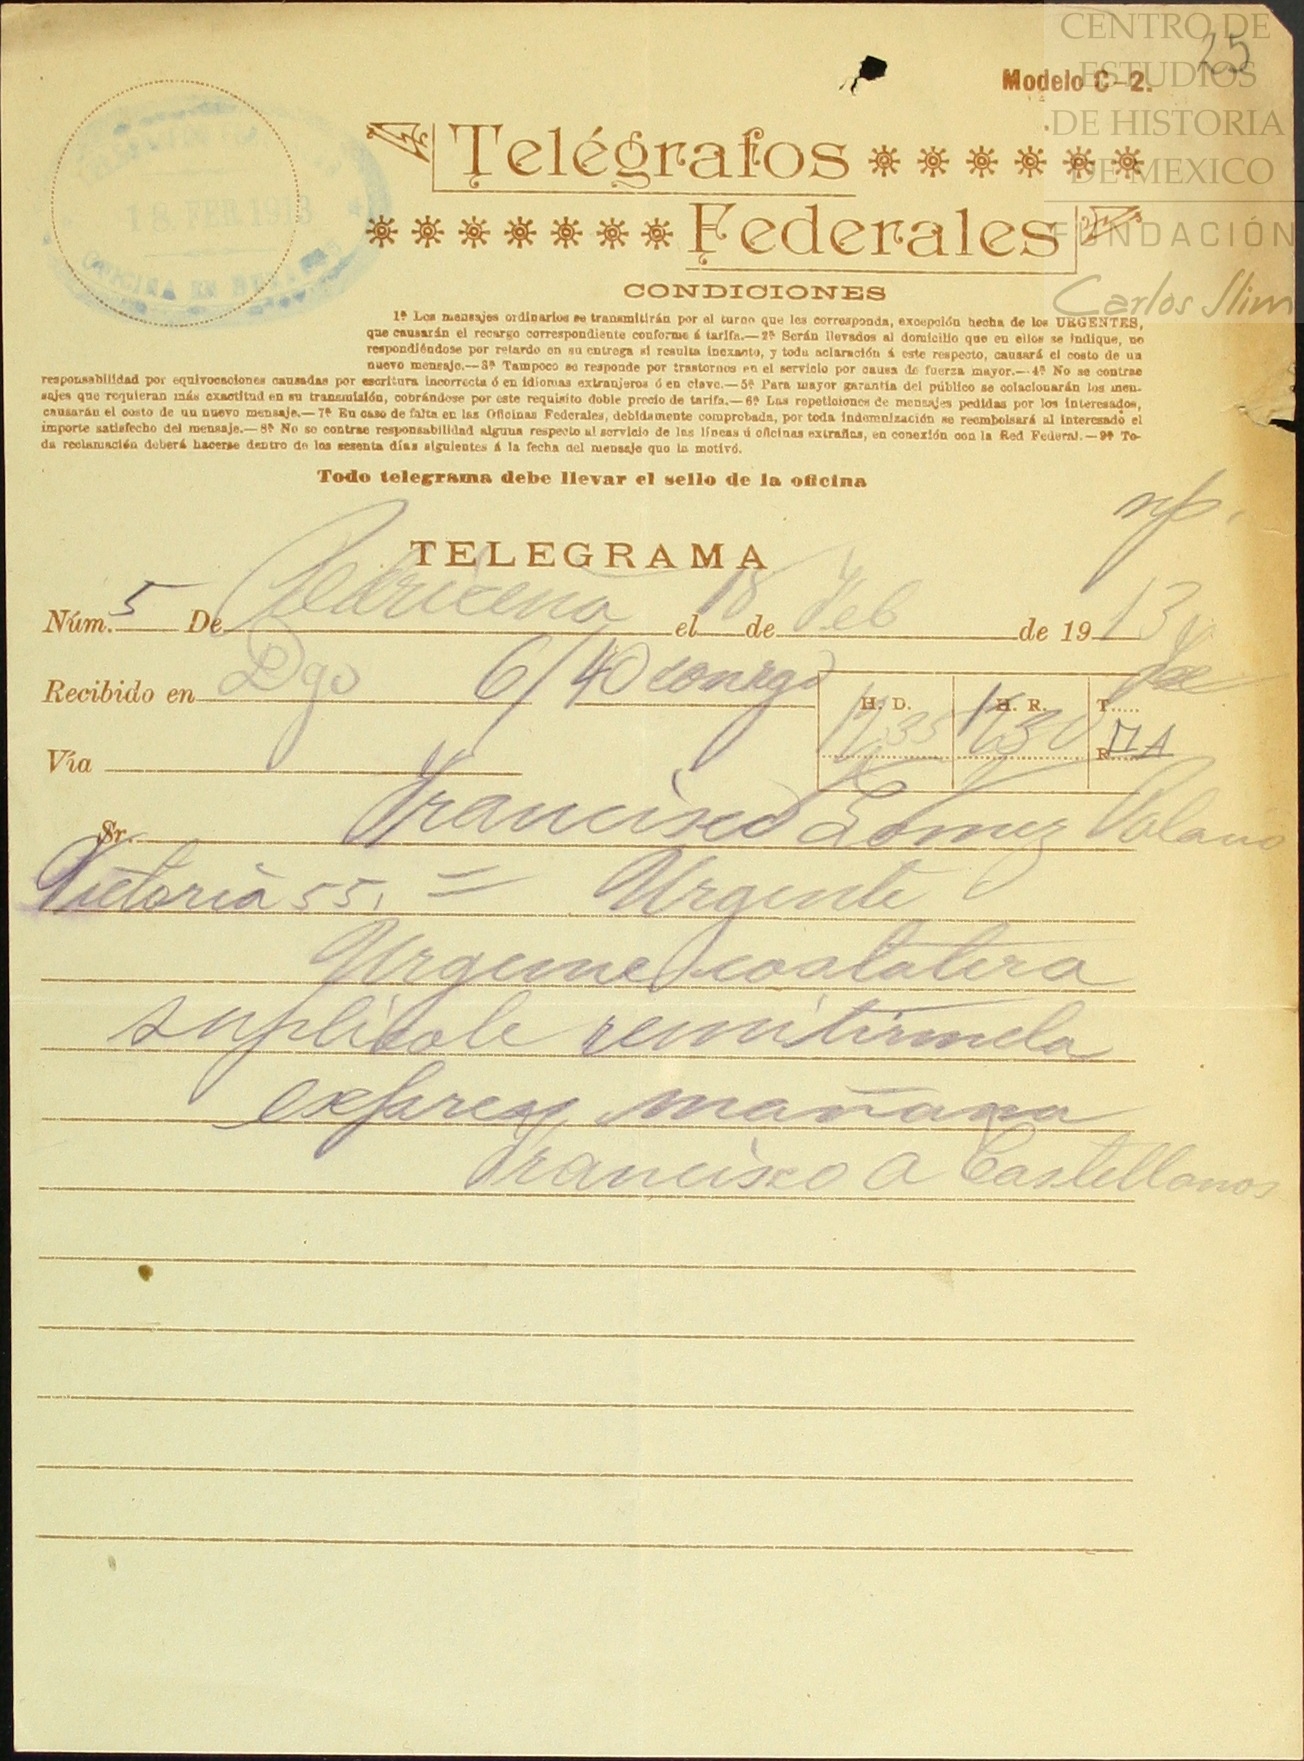 CENTRO DE
ESTUDIOS
DE HISTORIA
DE MEXICO
FUNDACIÓN
Carlos Slim
25
Modelo C-2.
18 FEB. 1913
Telégrafos
Federales
CONDICIONES
1ª Los mensajes ordinarios se transmitirán por el turno que les corresponda, excepción hecha de los URGENTES,
que causarán el recargo correspondiente conforme á tarifa.—2ª Serán llevados al domicilio que en ellos se indique, no
respondiéndose por retardo en su entrega si resulta inexacto, y toda aclaración á este respecto, causará el costo de un
nuevo mensaje.—3ª Tampoco se responde por trastornos en el servicio por causa de fuerza mayor.—4ª No se contrae
responsabilidad por equivocaciones causadas por escritura incorrecta ó en idiomas extranjeros ó en clave.—5ª Para mayor garantía del público se colacionarán los men-
sajes que requieran más exactitud en su transmisión, cobrándose por este requisito doble precio de tarifa.—6ª Las repeticiones de mensajes pedidas por los interesados,
causarán el costo de un nuevo mensaje.—7ª En caso de falta en las Oficinas Federales, debidamente comprobada, por toda indemnización se reembolsará al interesado el
importe satisfecho del mensaje.—8ª No se contrae responsabilidad alguna respecto al servicio de las líneas ú oficinas extrañas, en conexión con la Red Federal.—9ª To-
da reclamación deberá hacerse dentro de los sesenta días siguientes á la fecha del mensaje que la motivó.
Todo telegrama debe llevar el sello de la oficina
TELEGRAMA
Núm. 5 De Pedriceña el 18 de Feb de 1913
Recibido en Dgo 6/40
H. D. H. R. T.
12,35 12,30 R.
Vía
Sr. Francisco Gomez Palacio
Victoria 55. = Urgente
Urgeme
suplicole remitirmela
expres mañana
Francisco A Castellanos